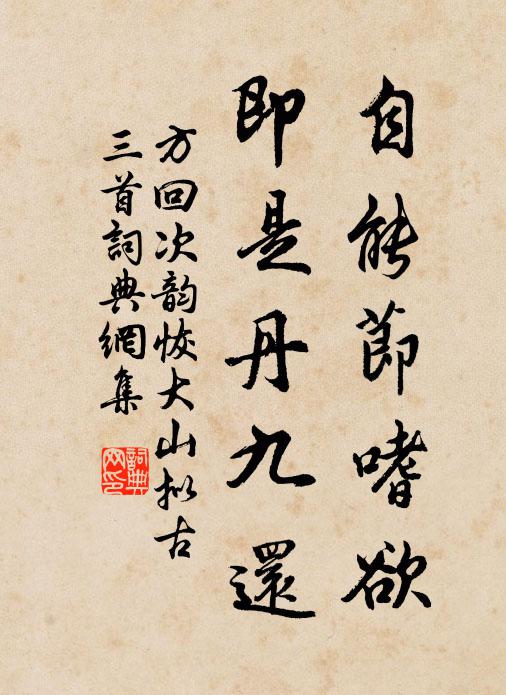 自能節嗜欲
即是丹九還
方回次韵恢大山拟古
三首詞典網集
詞典
网印